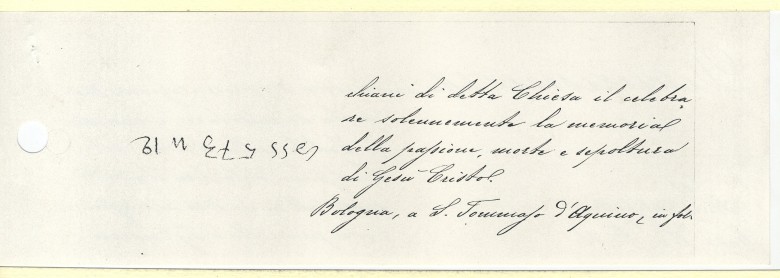 chiani di detta Chiesa il celebra
re solennemente la memorial
della passione, morte e sepoltura
di Gesù Cristo.
Bologna, a S. Tommaso d'Aquino, in fol.